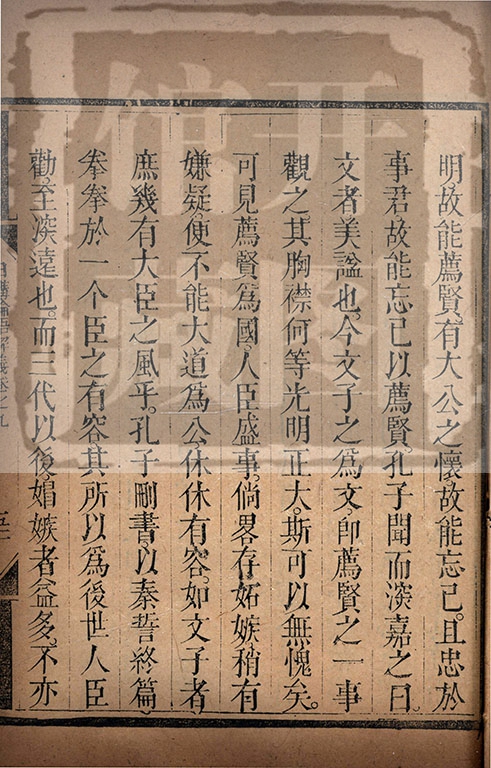 明。故能薦賢。有大公之懷。故能忘己。且忠於
事君。故能忘己以薦賢。孔子聞而深嘉之曰。
文者美謚也。今文子之爲文。卽薦賢之一事
觀之。其胸襟何等光明正大。斯可以無愧矣。
可見薦賢爲國。人臣盛事。倘畧存妬嫉。稍有
嫌疑。便不能大道爲公。休休有容。如文子者
庶幾有大臣之風乎。孔子刪書。以秦誓終篇。
拳拳於一个臣之有容。其所以爲後世人臣
勸。至深遠也。而三代以後。媢嫉者益多。不亦